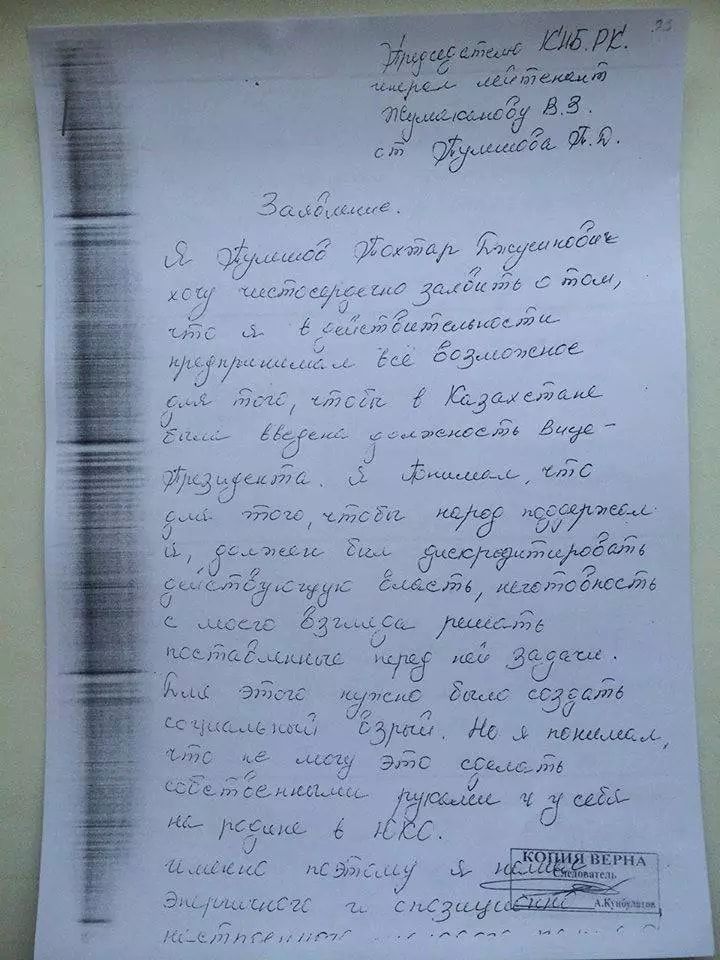 23
Председателю КНБ.РК.
генерал лейтенант
Жумаканову В.З.
от Тулешова Т.Д.
Заявление.
Я Тулешов Тохтар
хочу чистосердечно заявить о том,
что я в действительности
предпринимал всё возможное
для того, чтобы в Казахстане
была введена должность Вице-
Президента. Я понимал, что
для этого, чтобы народ поддержал
я, должен был дискредитировать
действующую власть, неготовность
с моего взгляда решать
поставленные перед ней задачи.
Для этого нужно было создать
социальный взрыв. Но я понимал,
что не могу это сделать
собственными руками и у себя
на родине в ЮКО.
именно поэтому я
энергичного и
КОПИЯ ВЕРНА
Следователь
А.Кунбулатов